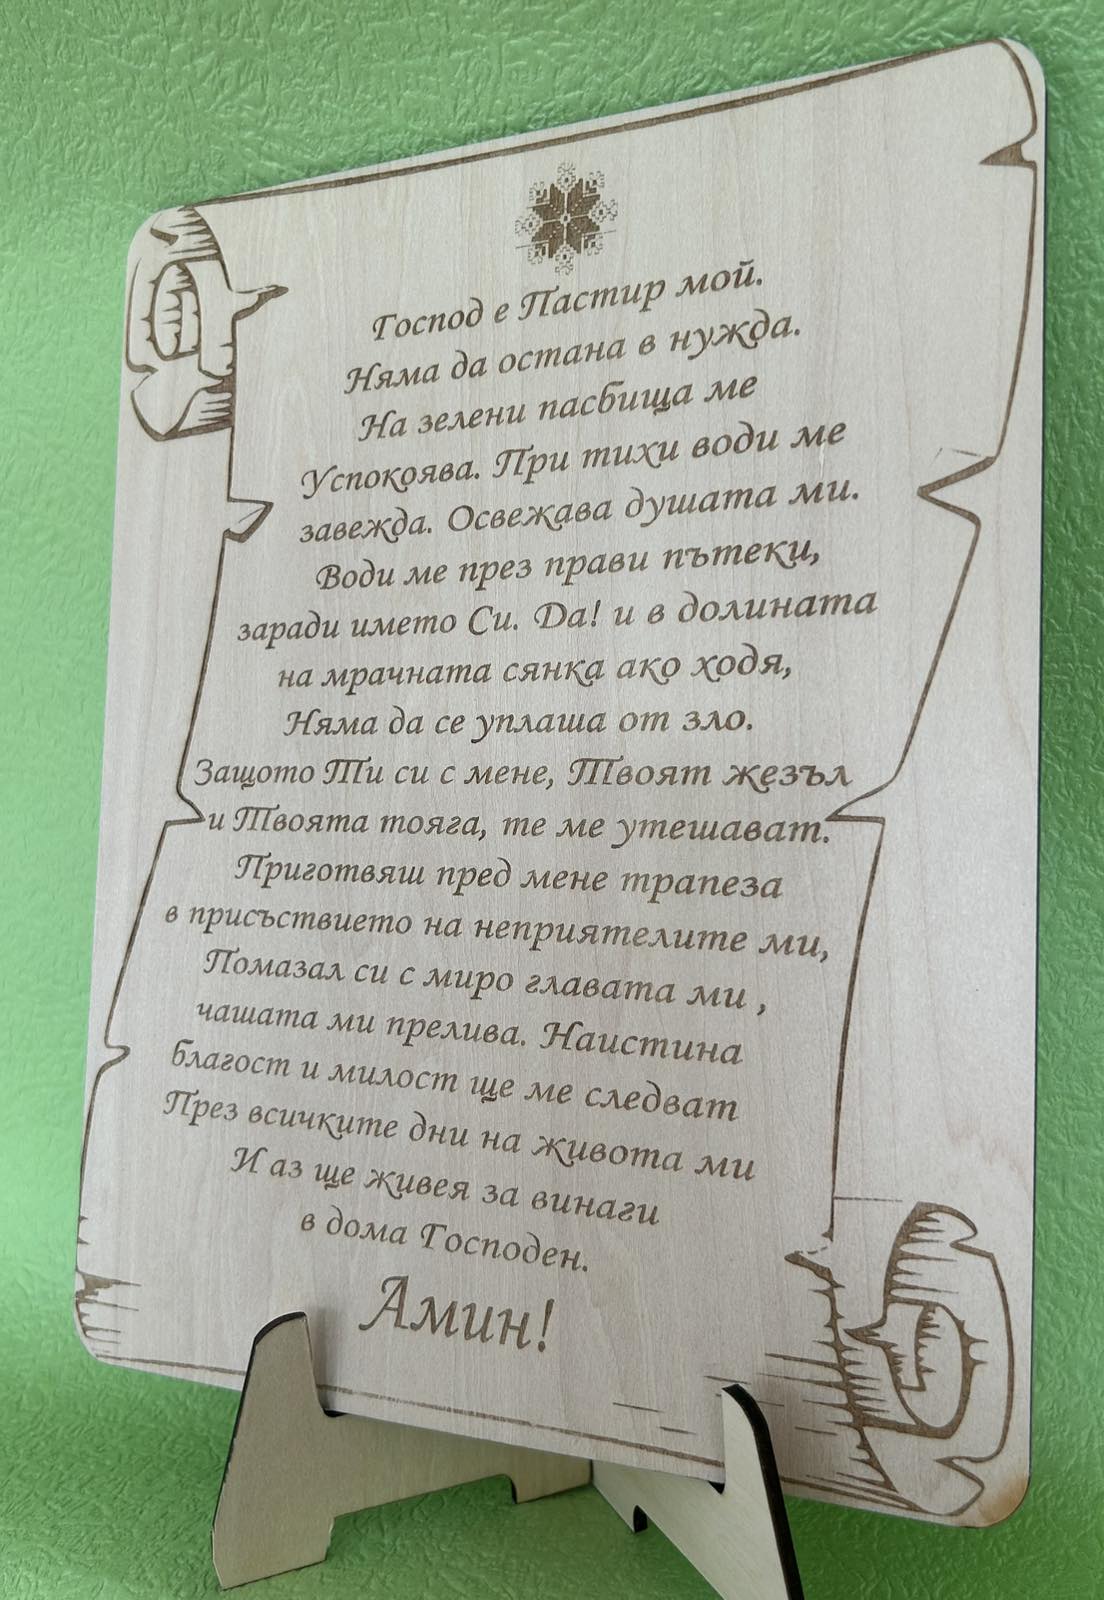 Господ е Пастир мой.
Няма да остана в нужда.
На зелени пасбища ме
Успокоява. При тихи води ме
завежда. Освежава душата ми.
Води ме през прави пътеки,
заради името Си. Да! и в долината
на мрачната сянка ако ходя,
Няма да се уплаша от зло.
Защото Ти си с мене, Твоят жезъл
и Твоята тояга, те ме утешават.
Приготвяш пред мене трапеза
в присъствието на неприятелите ми,
Помазал си с миро главата ми ,
чашата ми прелива. Наистина
благост и милост ще ме следват
През всичките дни на живота ми
И аз ще живея за винаги
в дома Господен.
Амин!